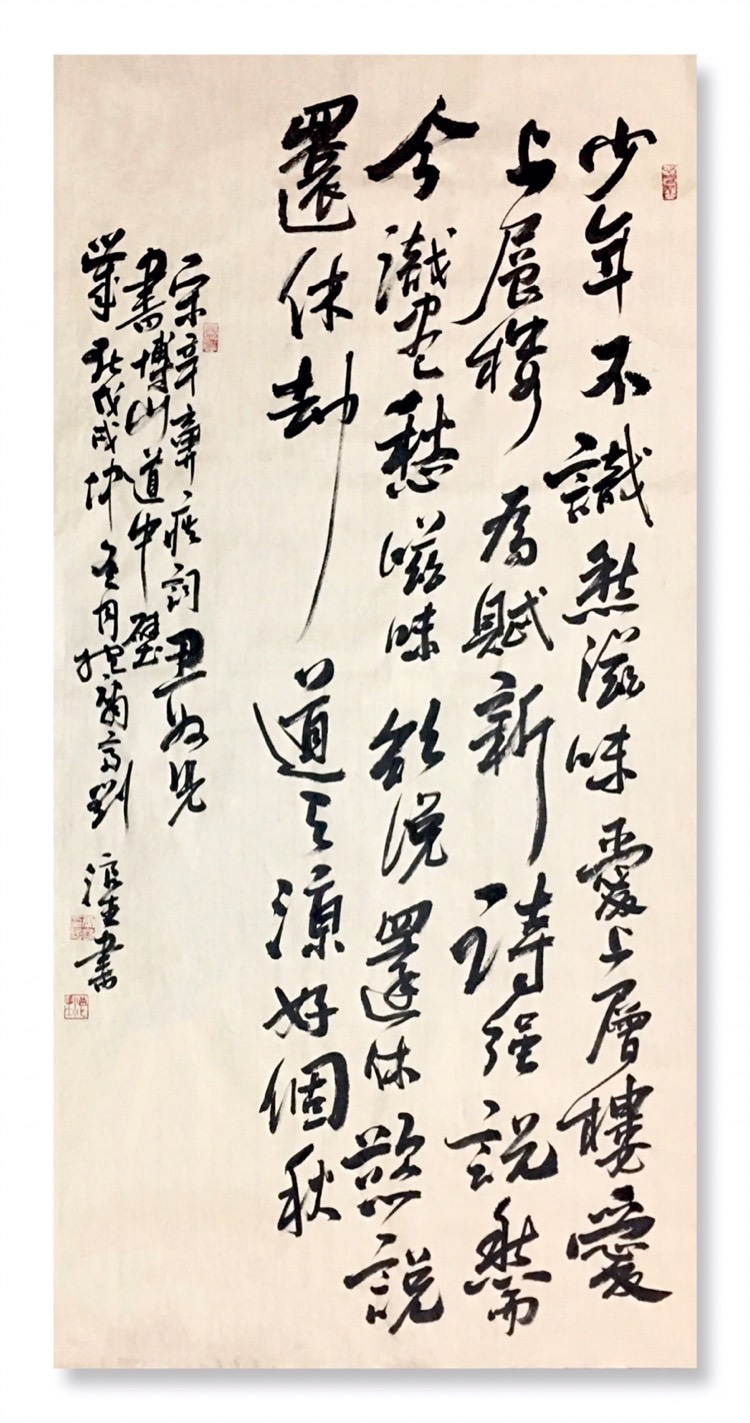 少年不識愁滋味愛上層樓愛
上層樓為賦新詩强説愁而
今識盡愁滋味欲说還休慾説
還休却道天涼好個秋
宋辛棄疾詞丑奴兒
書博山道中壁
戊戌仲冬月抱菊劉生書